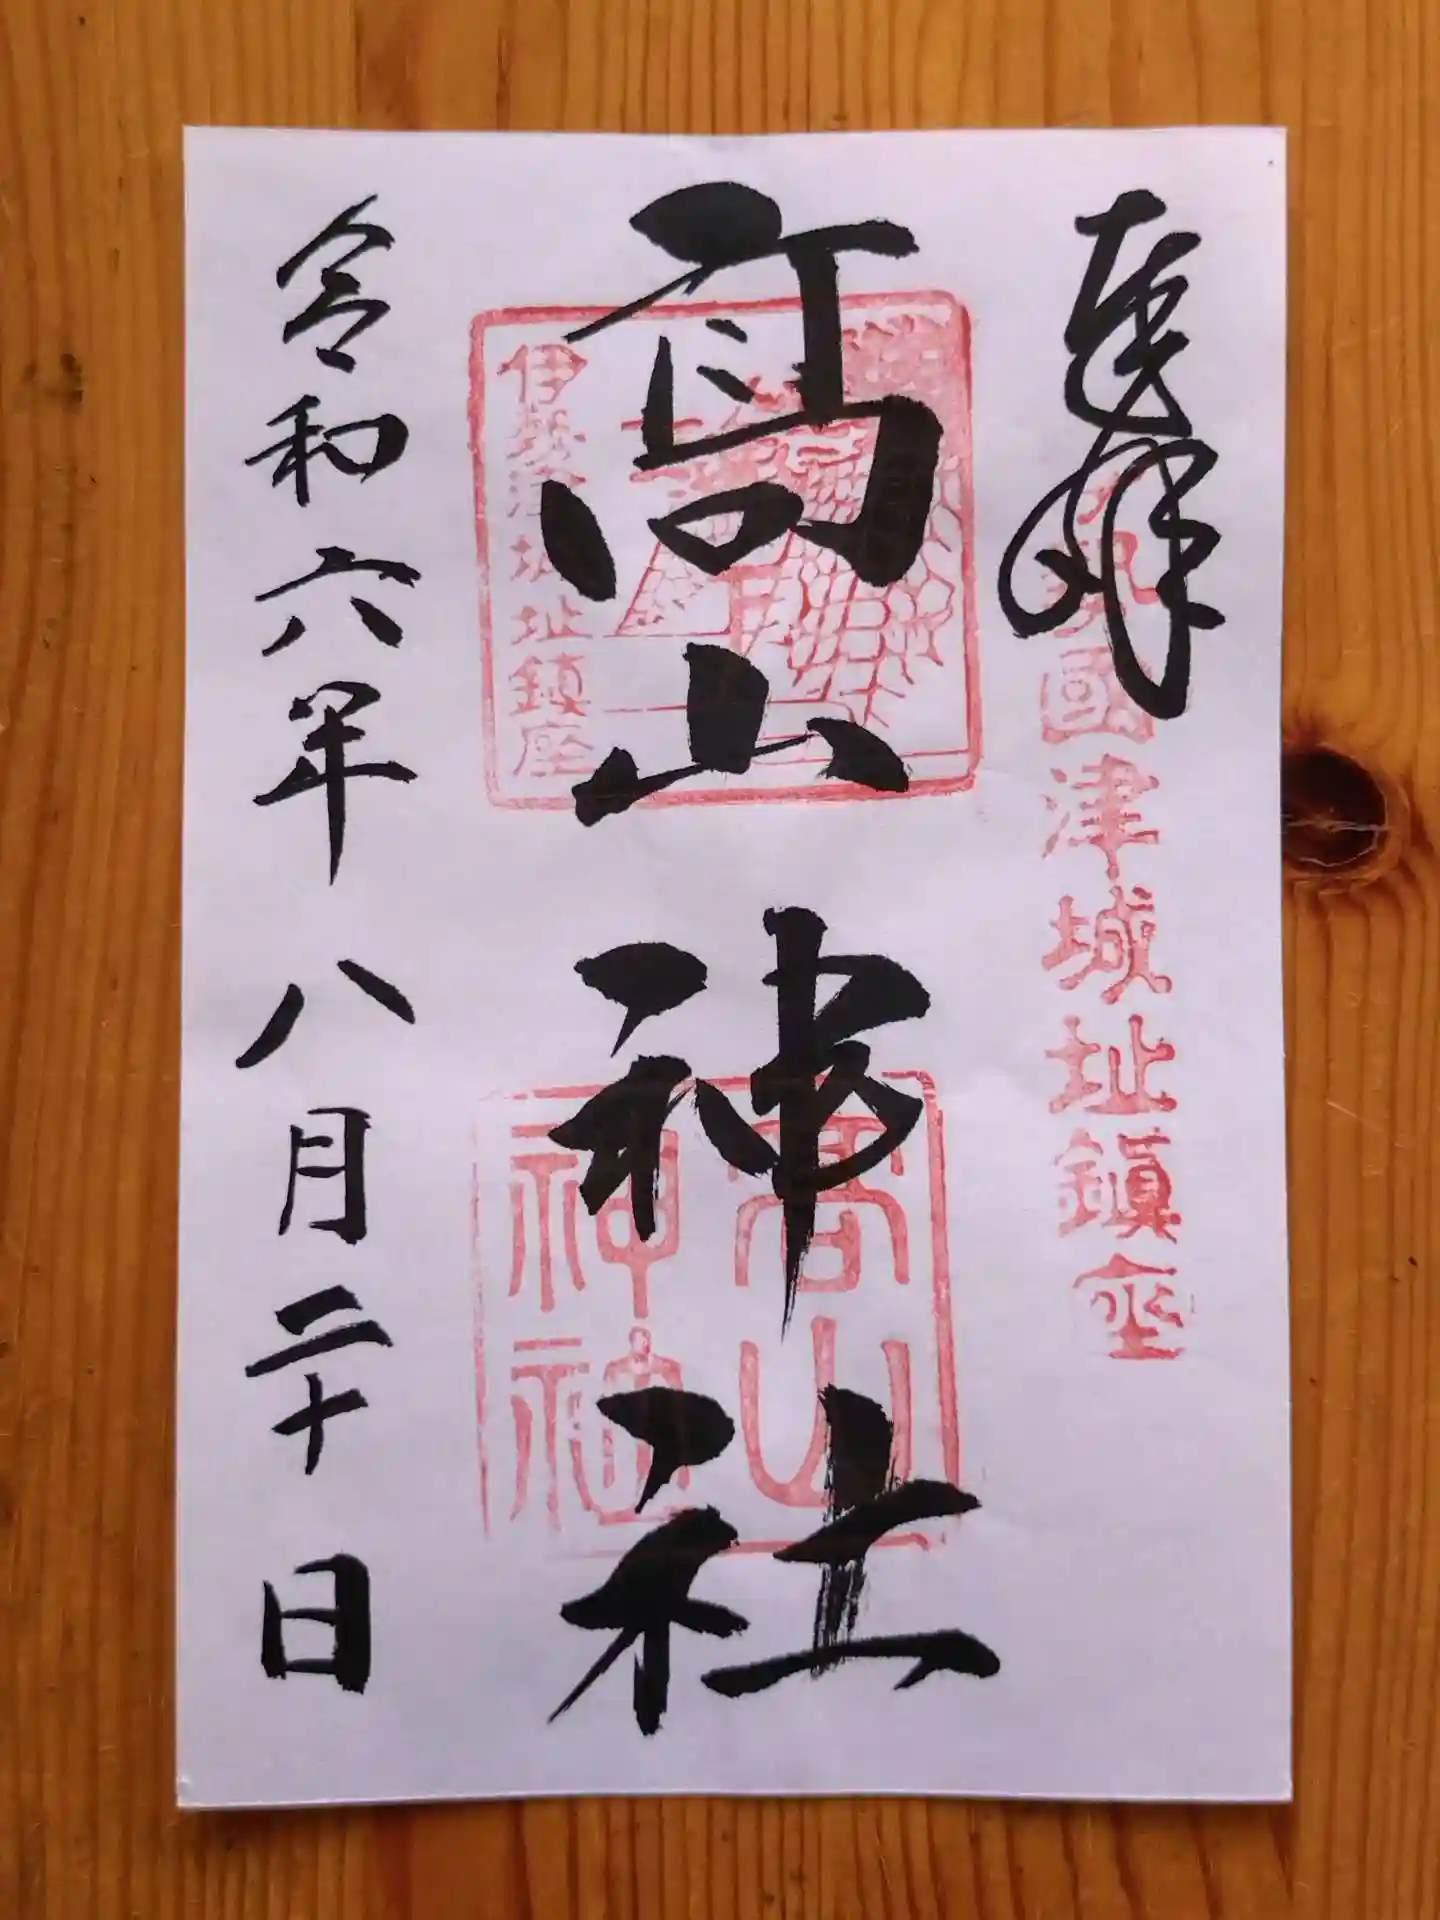 奉拝
伊勢國津城址鎮座
高山神社
伊勢津城址鎮座
高山
神社
令和六年八月二十日